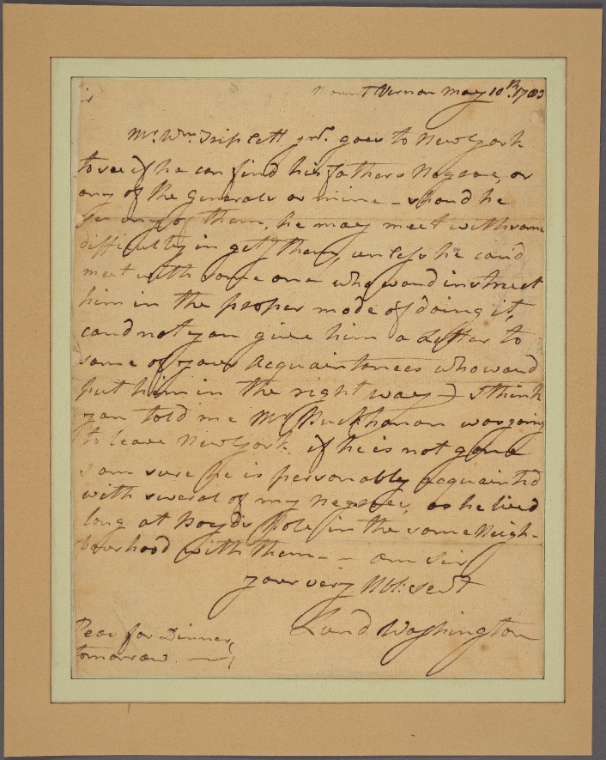 Mount Vernon May 10th. 1783
Mr. Wm. Triplett jnr. goes to New York
to see if he can find his fathers Negroe, or
any of the Generals or mine – shoud he
see any of them, he may meet with some
difficulty in getg them, unless he coud
meet with some one who woud instruct
him in the proper mode of doing it,
coud not you give him a Letter to
some of your Acquaintances who woud
put him in the right way – I think
you told me Mr. Buckhanan was going
to leave New York. if he is not gone
I am sure he is personably Acquaintd
with several of my negroes, as he lived
long at Boyds Hole in the same Neigh-
bourhood with them – – am Sir
your very Hbl: Servt
Lund Washington
Peas for Dinner
tomorrow. –